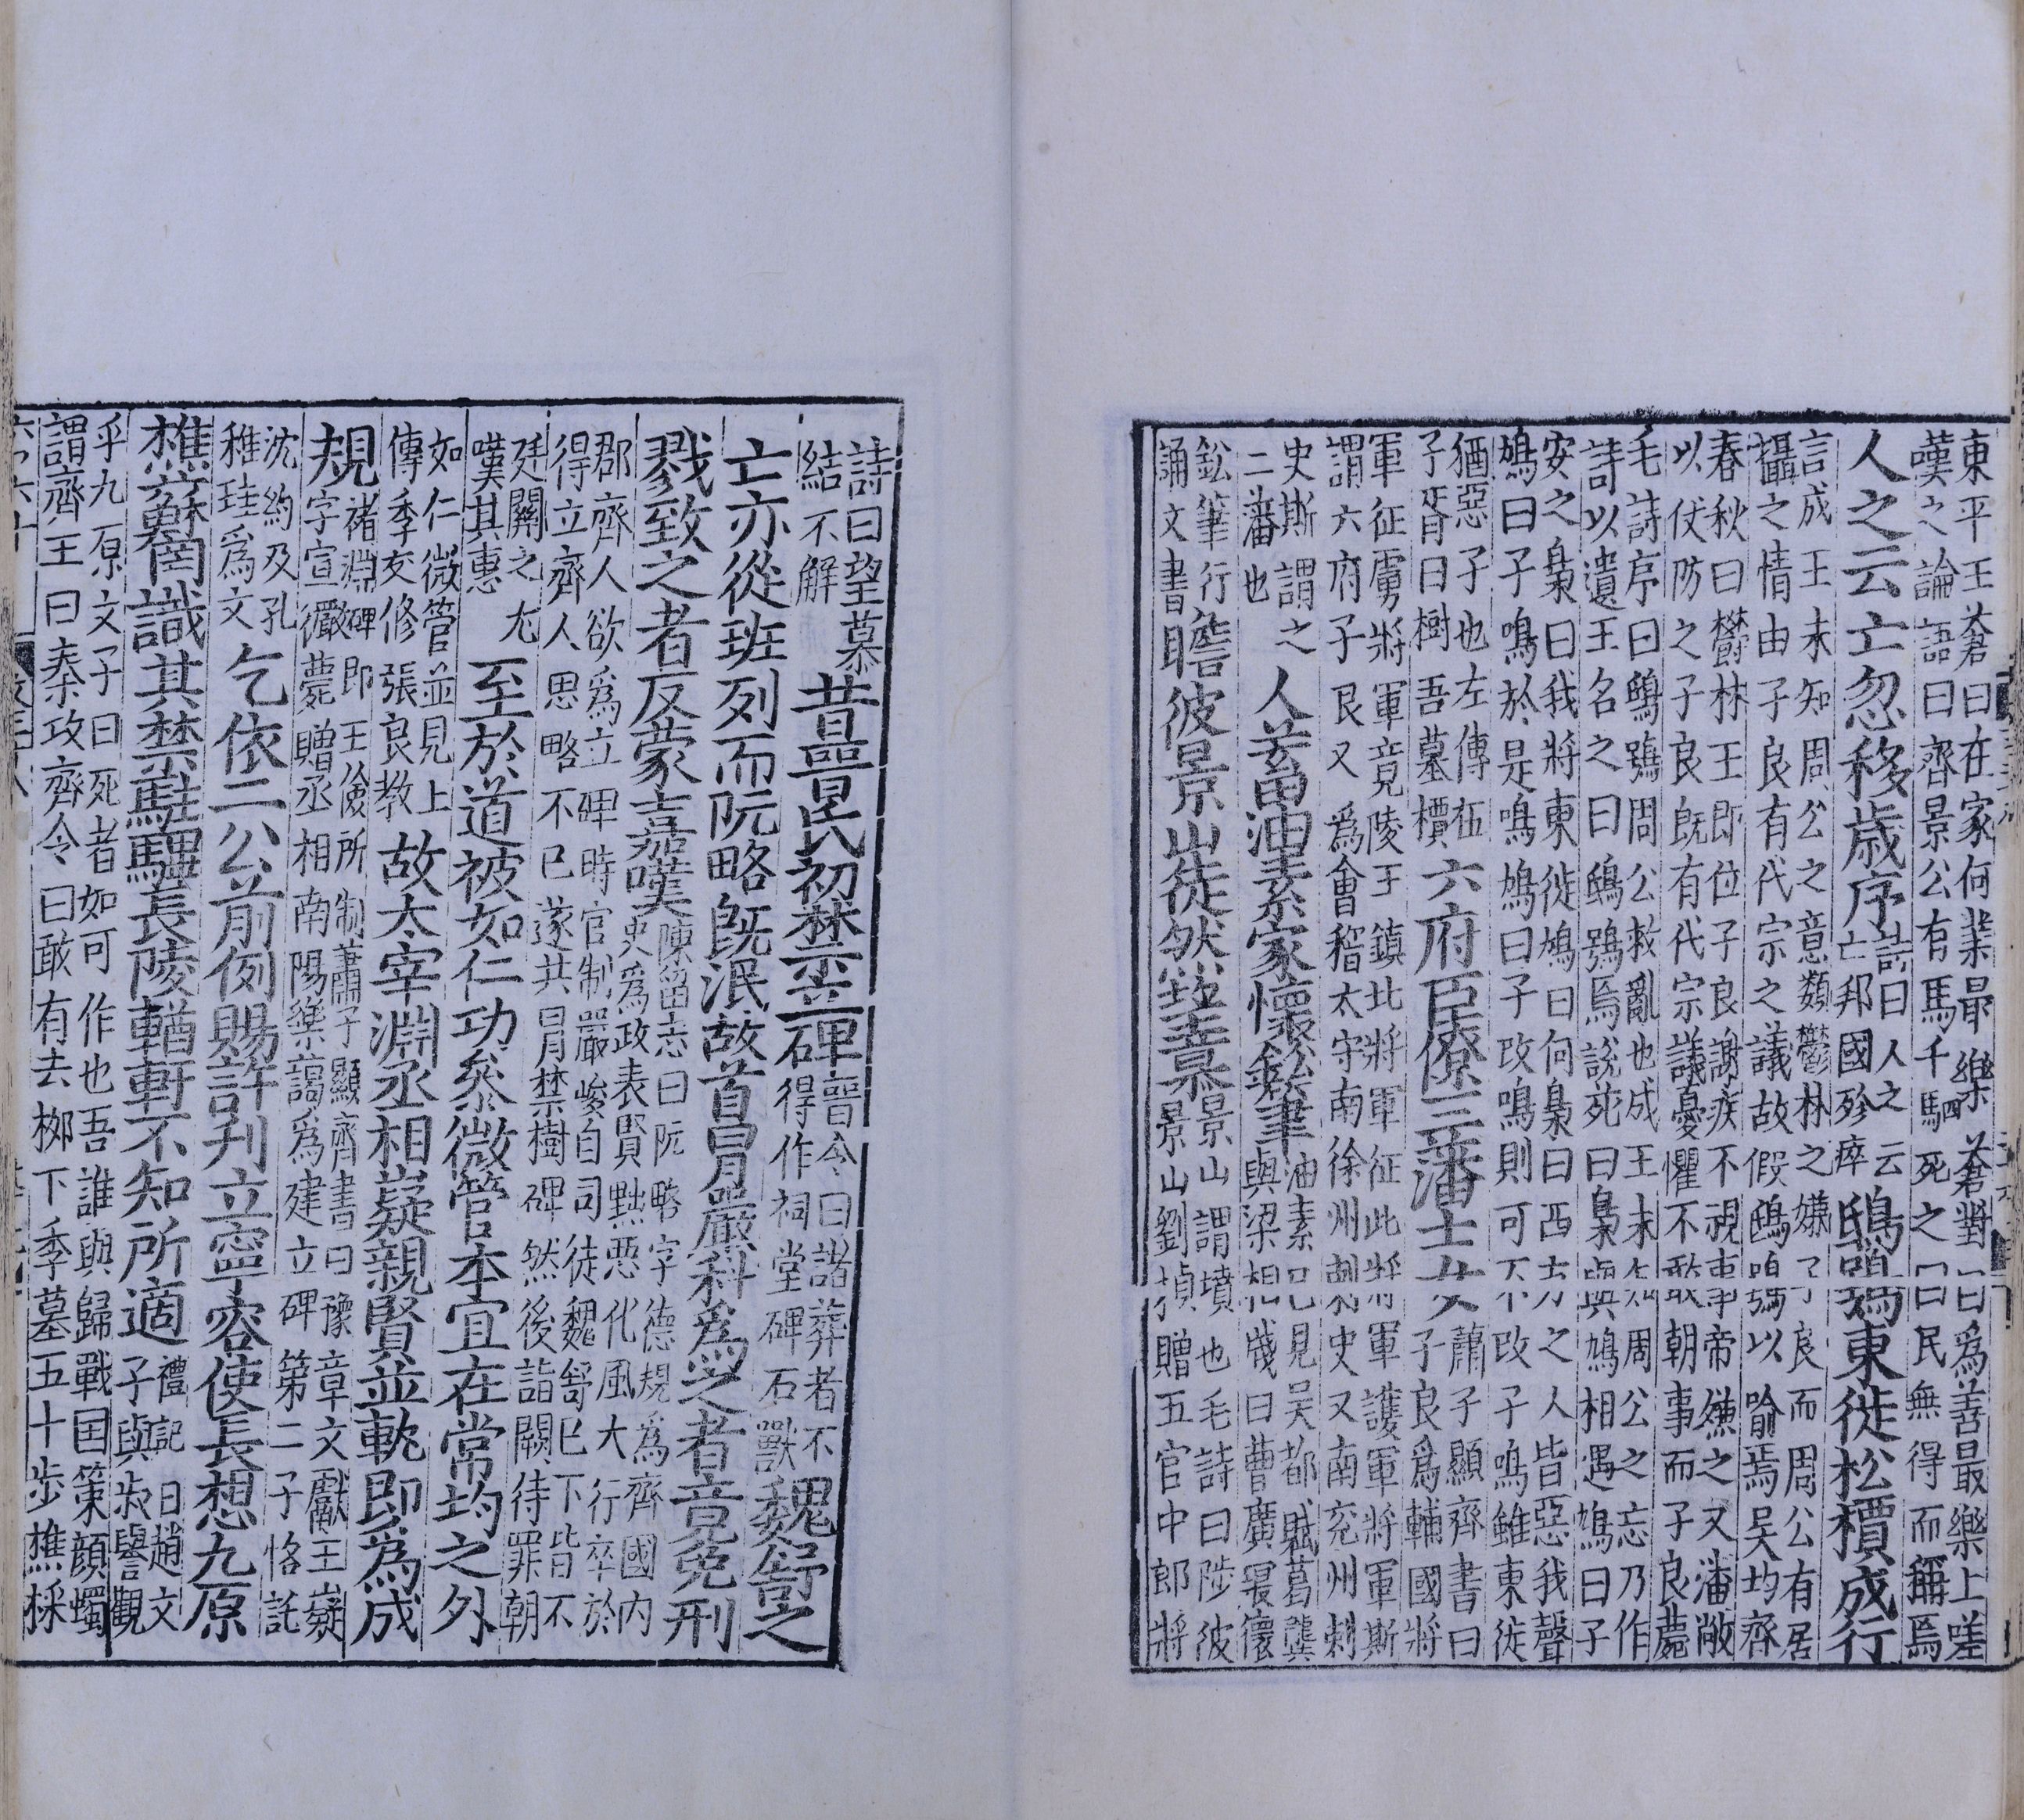 東平王蒼曰在家何業最樂蒼對曰為善最樂上嗟
嘆之論語曰齊景公有馬千駟死之曰民無得而稱焉
人之云亡忽移歲序詩曰人之云亡邦國殄瘁鴟鴞東徙松檟成行
言成王未知周公之意類鬱林之嫌子良而周公有居
攝之情由子良有代宗之議故假鴟鴞以喻焉吳均齊
春秋曰欝林王即位子良謝疾不視事帝嫌之又潘敞
以仗防之子良既有代宗議憂懼不敢朝事而子良薨
毛詩序曰鴟鴞周公救亂也成王未知周公之忘乃作
詩以遺王名之曰鴟鴞焉說苑曰梟與鳩相遇鳩曰子
安之梟曰我將東徙鳩曰何梟曰西方之人皆惡我聲
鳩曰子鳴於是鳴鳩曰子改鳴則可不改子鳴雖東徙
猶惡子也左傳伍子胥曰樹吾墓檟六府臣僚三藩士女蕭子顯齊書曰子良為輔國將
軍征虜將軍竟陵王鎮北將軍征北將軍護軍將軍斯
謂六府子良又為會稽太守南徐州刺史又南兗州刺
史斯謂之二藩也人蓄油素家懷鈆筆油素已見吳都賦葛龔與梁相牋曰曹廣寔懷
鈆筆行誦文書瞻彼景山徒然望慕景山謂墳也毛詩曰陟彼景山劉楨贈五官中郎將
詩曰望慕結不解昔晉氏初禁立碑晉令曰諸葬者不得作祠堂碑石獸魏舒之
亡亦從班列而阮略既泯故首冒嚴科為之者竟免刑
戮致之者反蒙嘉嘆陳留志曰阮略字德規為齊國內史為政表賢黜惡化風大行卒於
郡齊人欲為立碑時官制嚴峻自司徒魏舒已下皆不
得立齊人思略不已遂共冒禁樹碑然後詣闕待罪朝
廷聞之尤嘆其惠至於道被如仁功參微管本宜在常均之外
如仁微管並見上傳季友修張良教故太宰淵丞相嶷親賢並軌即為成
規褚淵碑即王儉所制蕭子顯齊書曰豫章文獻王嶷字宣儼薨贈丞相南陽樂藹為建立碑第二子恪託
沈約及孔稚珪為文乞依二公前例賜許刊立寧容使長想九原
樵蘇罔識其禁駐驆長陵輶軒不知所適禮記曰趙文子與叔譽觀
乎九原文子曰死者如可作也吾誰與歸戰国策顔蠋
謂齊王曰秦攻齊令曰敢有去柳下季墓五十步樵採